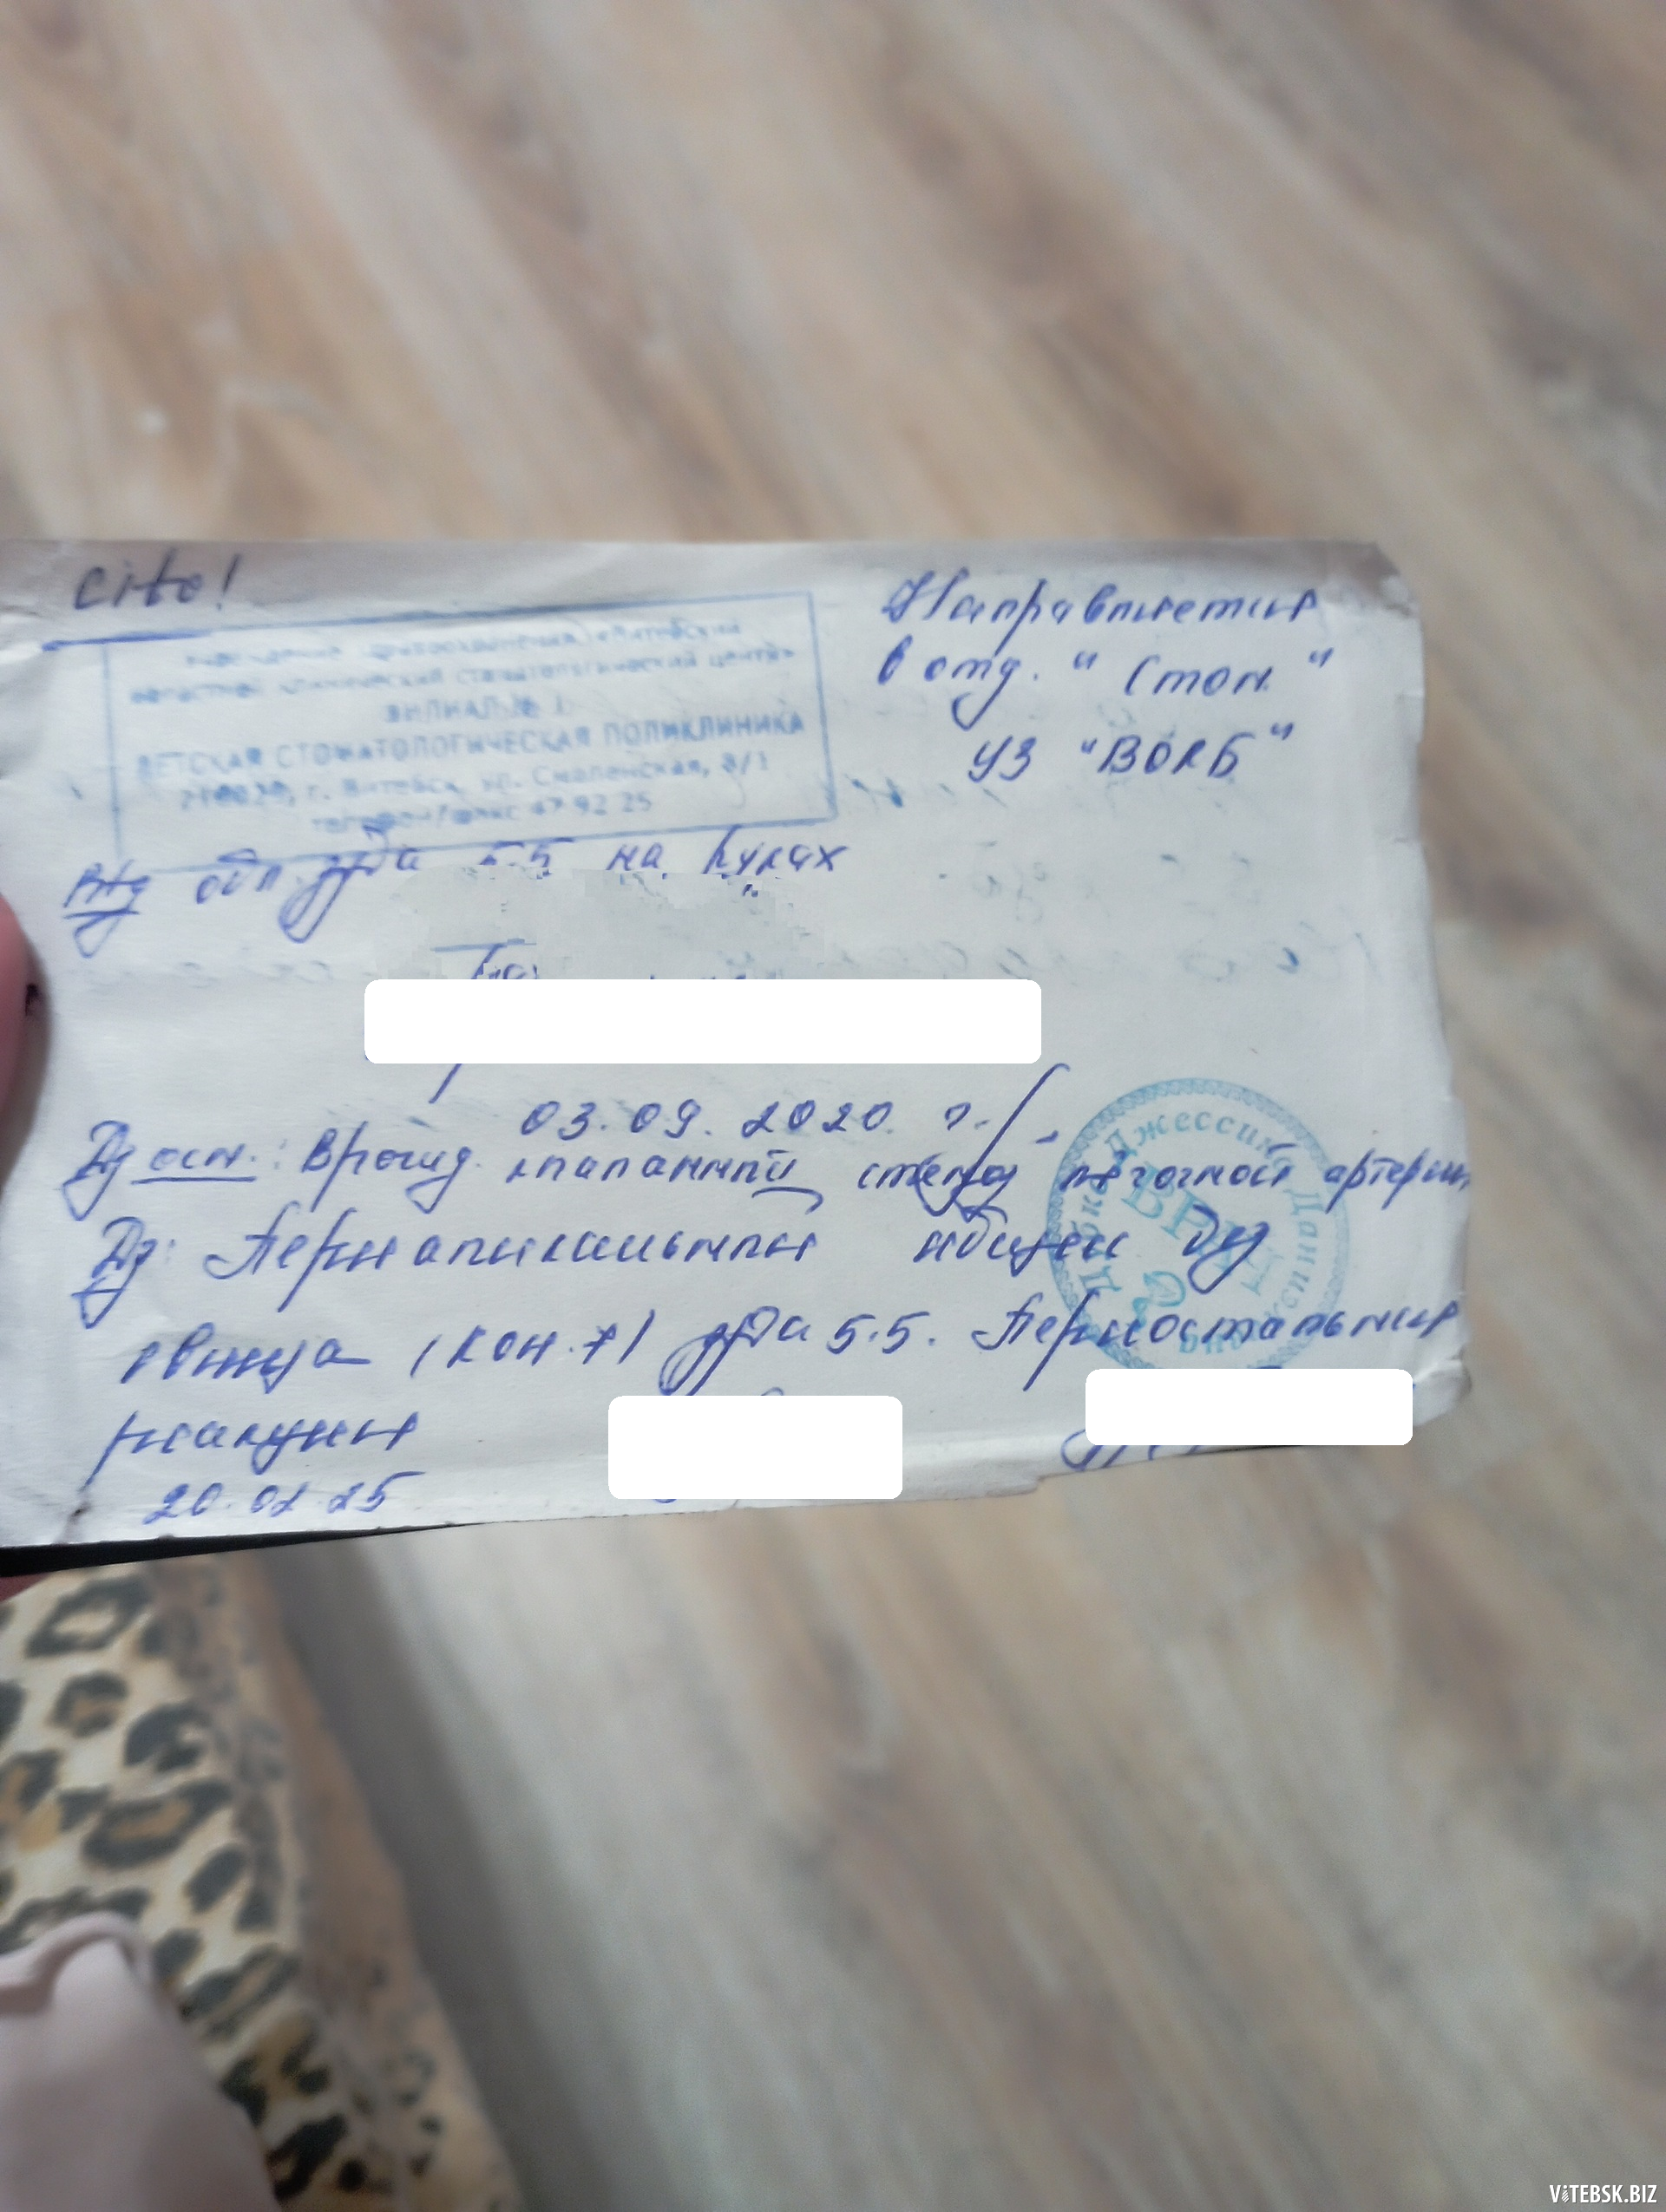 Cito!
Направляется
в отд. "Стом."
УЗ "ВОКБ"
областной клинический стоматологический центр»
ФИЛИАЛ № 1
ДЕТСКАЯ СТОМАТОЛОГИЧЕСКАЯ ПОЛИКЛИНИКА
г. Витебск, ул. Смоленская, 8/1
телефон/факс 47 92 25
зуба 5.5 на руках
03.09.2020 г.
Дз осн.: Врожд. клапанный стеноз легочной артерии,
Дз: Периапикальный абсцесс без
свища (К04.7) зуба 5.5. Периостальная
реакция
20.02.25
Джессика
ВРАЧ
VITEBSK.BIZ